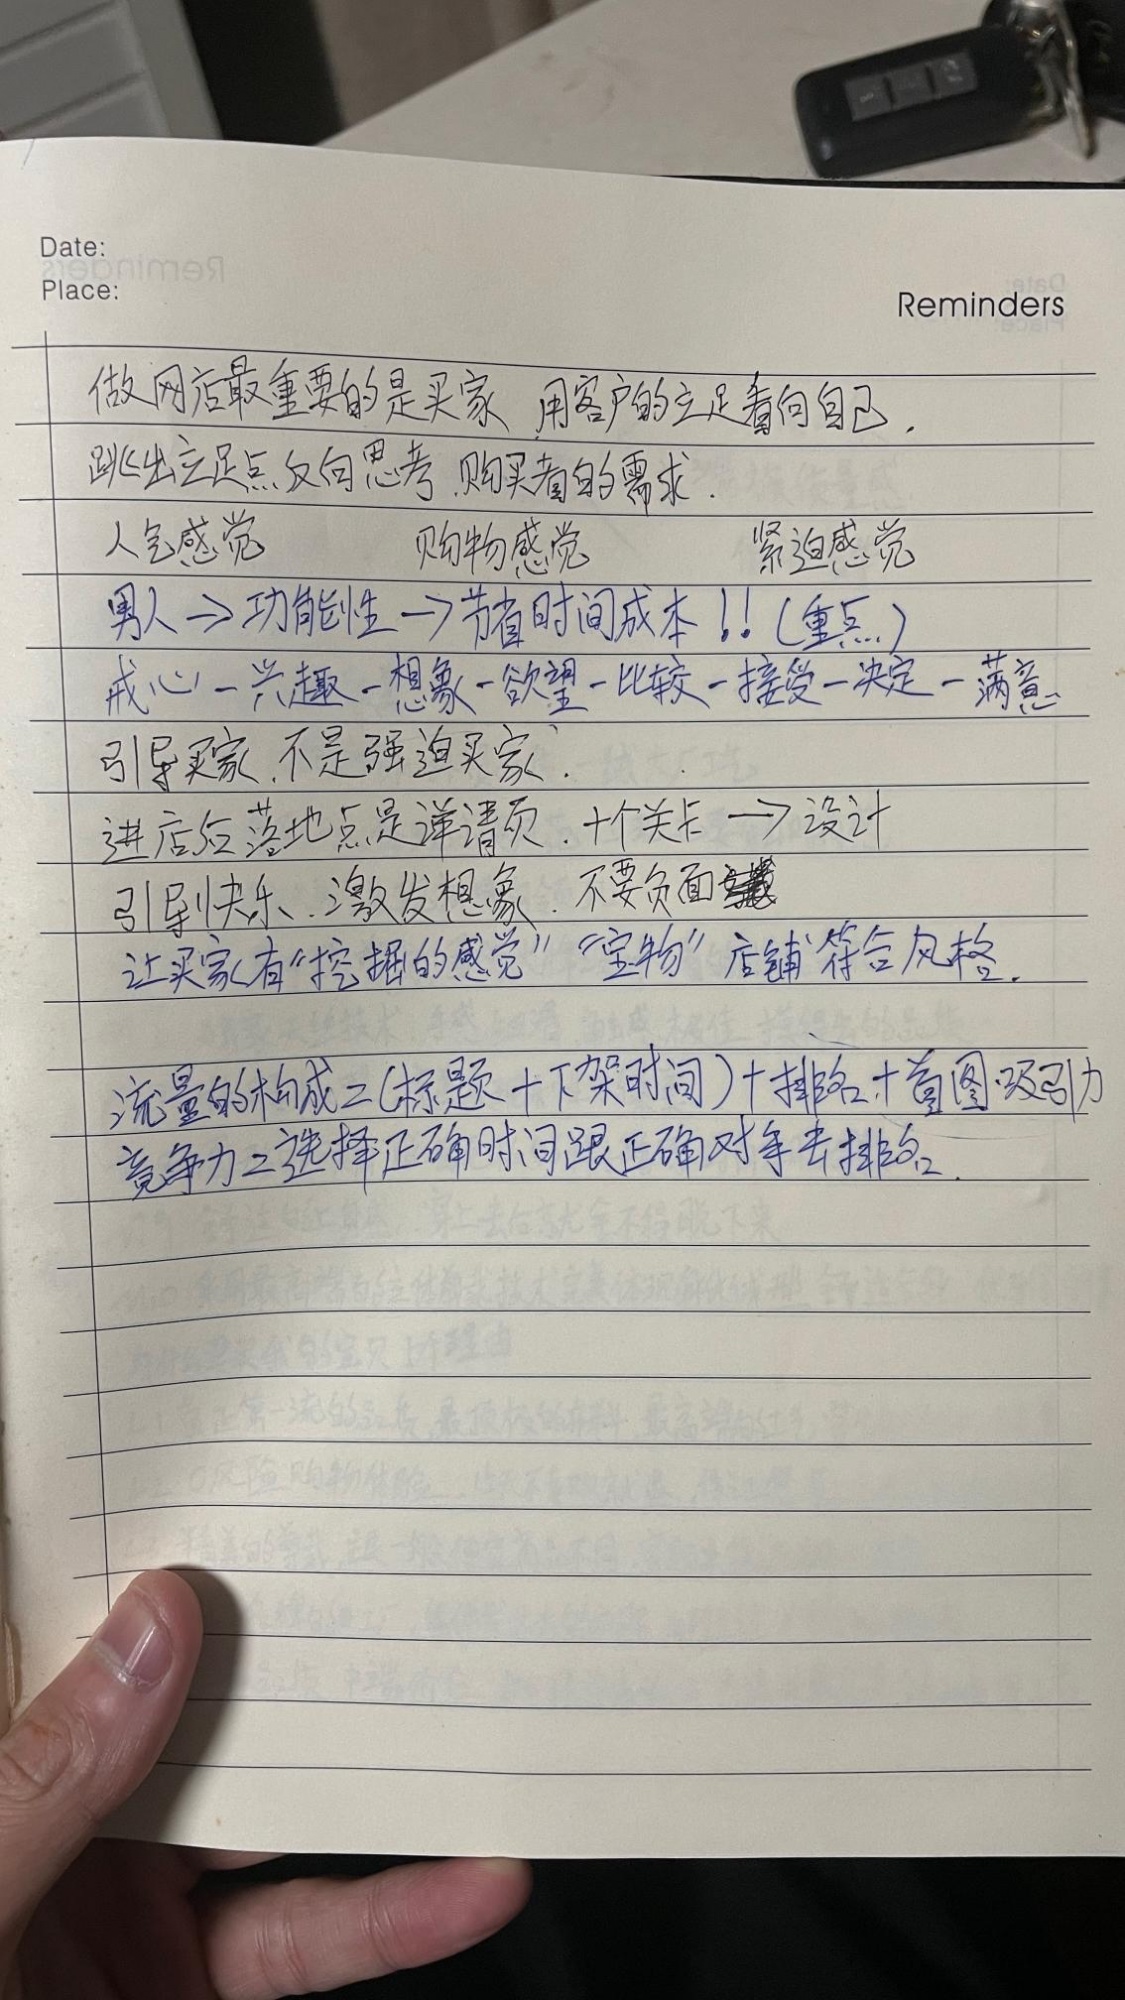 Date:
Place:
Reminders
做网店最重要的是买家 用客户的立足看向自己.
跳出立足点反向思考.购买者的需求.
人气感觉 购物感觉 紧迫感觉
男人→功能性→节省时间成本!!(重点)
戒心-兴趣-想象-欲望-比较-接受-决定-满意
引导买家.不是强迫买家.
进店后落地点是详清页.十个关卡→设计
引导快乐.激发想象.不要负面
让买家有“挖掘的感觉”“宝物”店铺符合风格.
流量的构成=(标题+下架时间)+排名+首图吸引力
竞争力=选择正确时间跟正确对手去排名.